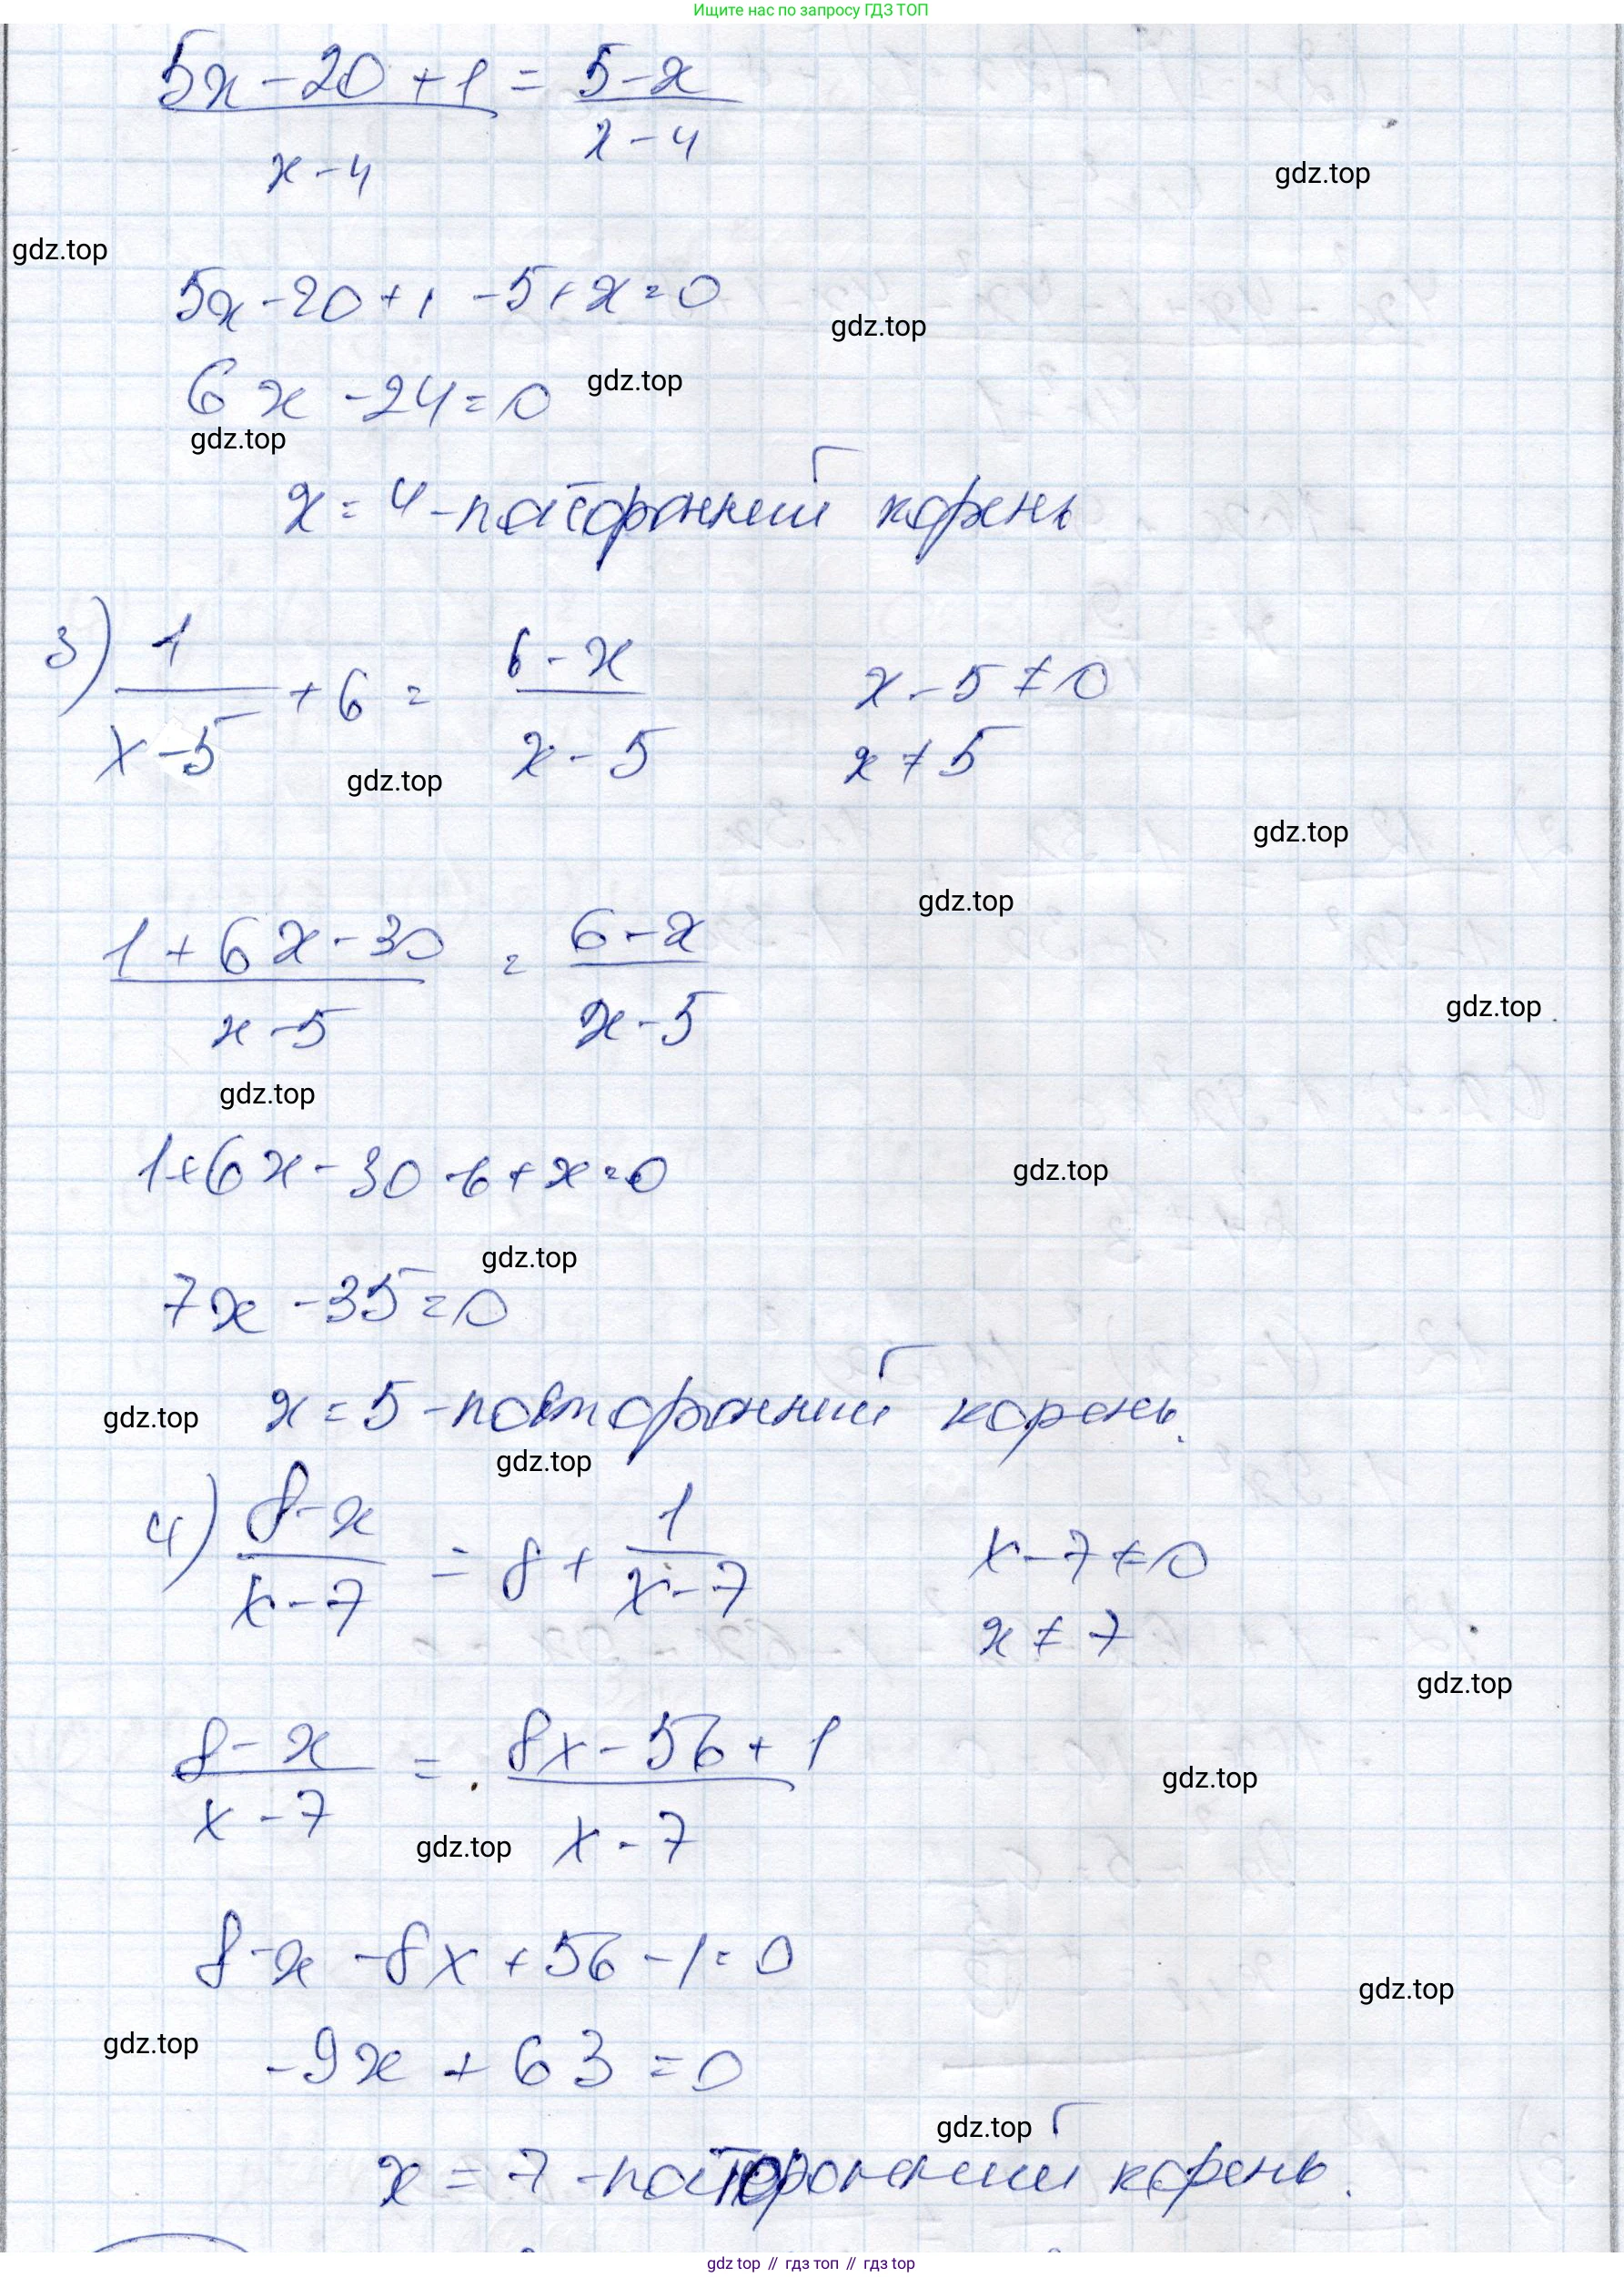 Ищите нас по запросу ГДЗ ТОП
5x - 20 + 1 = 5 - x
x - 4 x - 4
gdz.top
gdz.top
5x - 20 + 1 - 5 + x = 0
gdz.top
6x - 24 = 0
gdz.top
gdz.top
x = 4 - посторонний корень
3) 1/(x - 5) + 6 = (6 - x)/(x - 5) x - 5 ≠ 0
x ≠ 5
gdz.top
gdz.top
gdz.top
1 + 6x - 30 = 6 - x
x - 5 x - 5
gdz.top
gdz.top
1 + 6x - 30 - 6 + x = 0
gdz.top
gdz.top
7x - 35 = 0
x = 5 - посторонний корень.
gdz.top
gdz.top
4) (8 - x)/(x - 7) = 8 + 1/(x - 7) x - 7 ≠ 0
x ≠ 7
gdz.top
8 - x = 8x - 56 + 1
x - 7 x - 7
gdz.top
gdz.top
8 - x - 8x + 56 - 1 = 0
gdz.top
gdz.top
-9x + 63 = 0
gdz.top
x = 7 - посторонний корень.
gdz top // гдз топ // gdz top